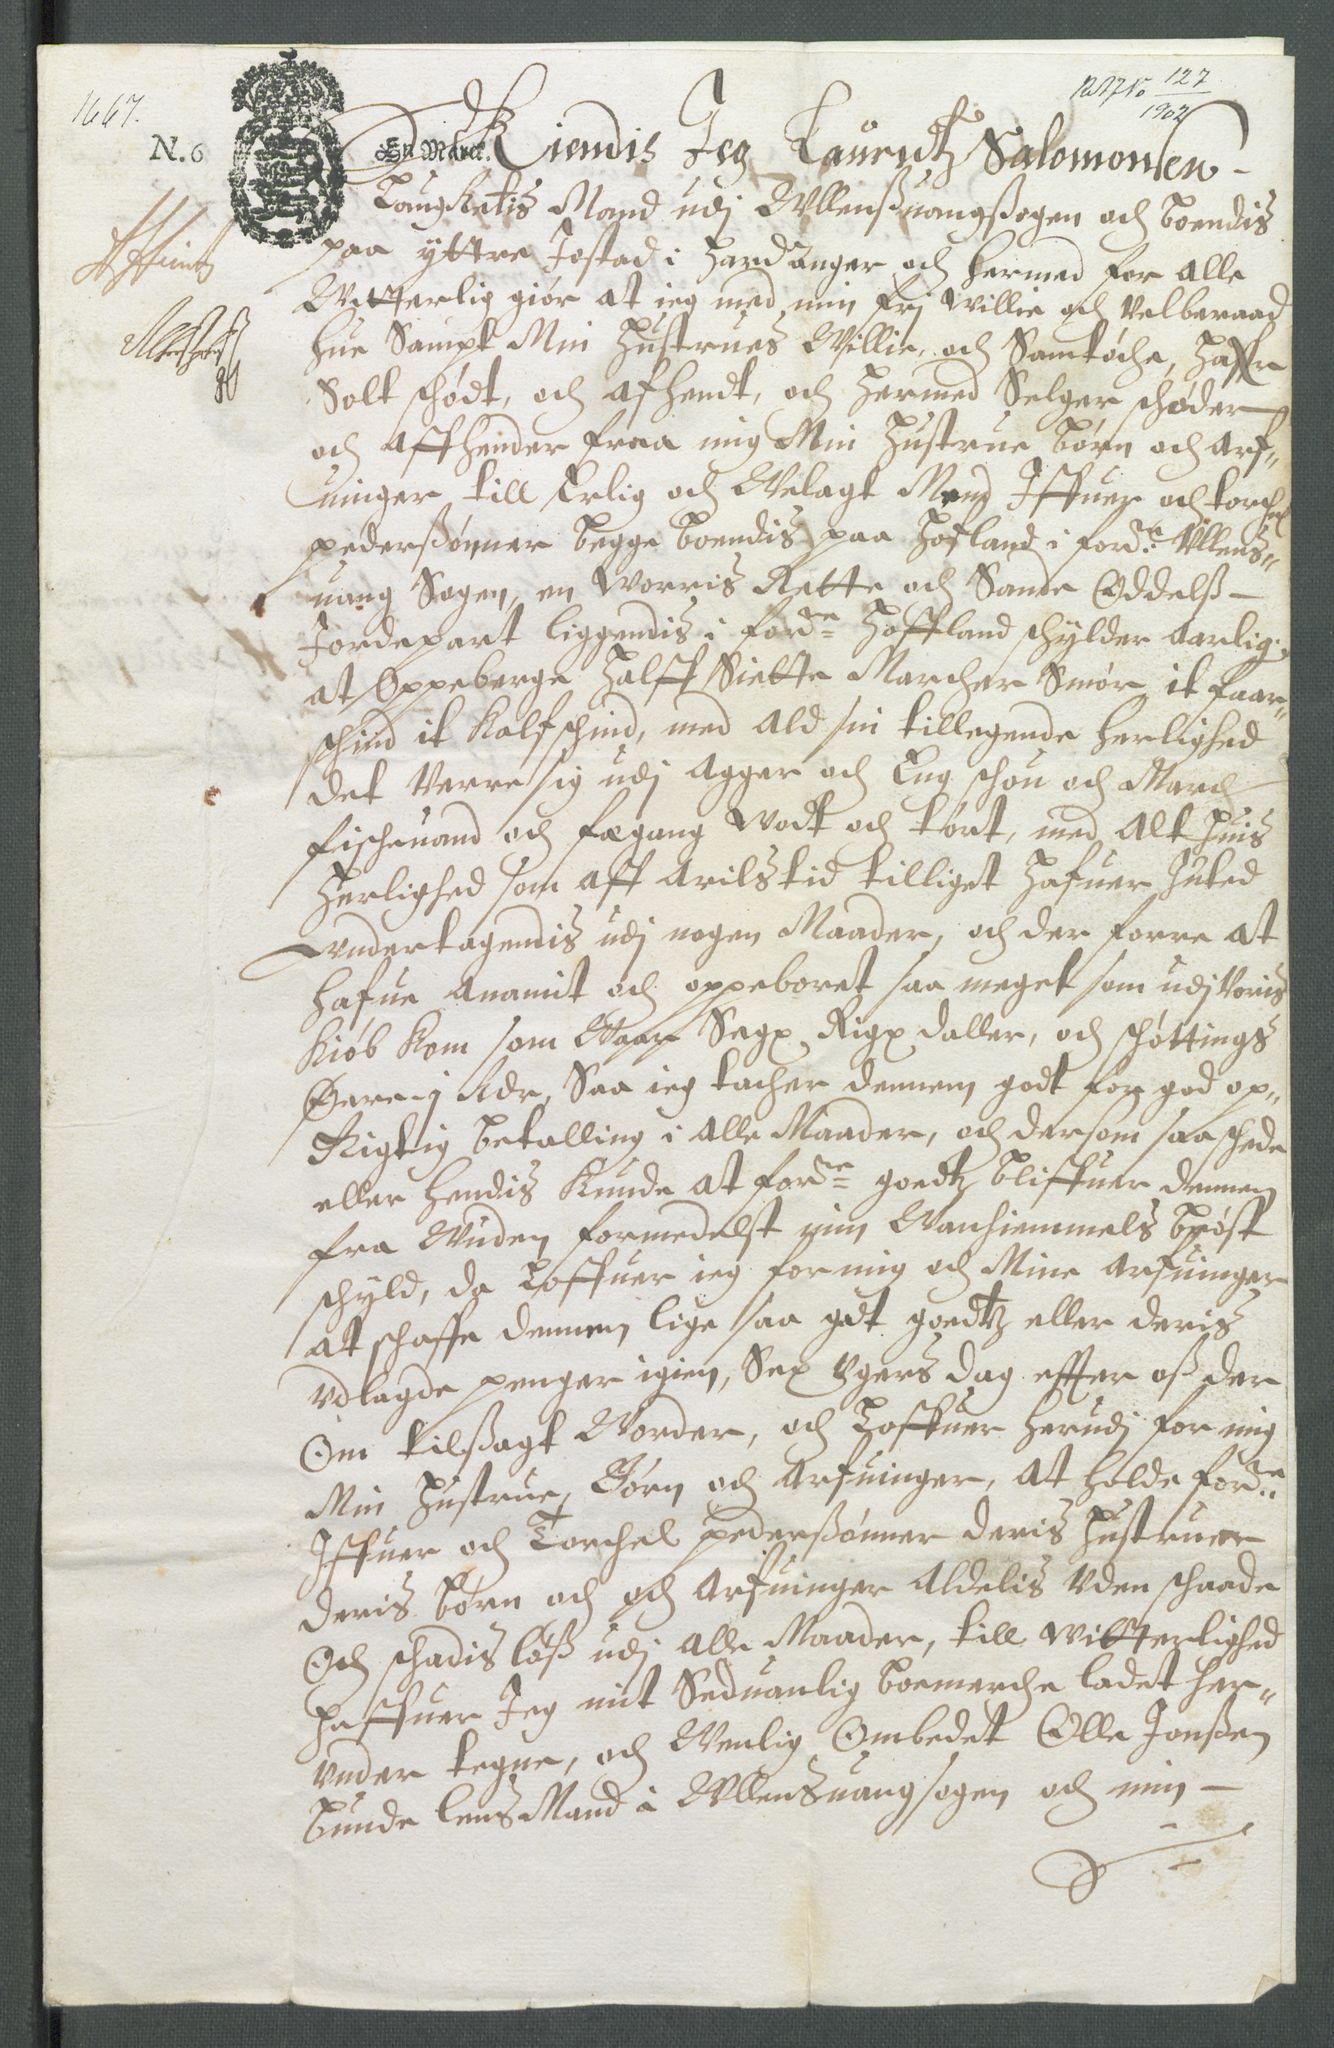 1667.
127
1902
N. 6
En Marck.
Kiendis Jeg Laurentz Salomonsen
Laugrettis Mand udj Ullensuangsogen och boendis
paa yttre Jostad i Hardanger och hermed for alle
Witterlig giör at ieg med min frj willie och velberaad
hue Sampt Min Hustrues Willie och Samtöche, Haffr
Solt schödt, och afhendt, och hermed Selger schöder
och affhender fraa mig Min Hustrue börn och arf„
uinger till Erlig och Welagt Mend Iffuer och torchel
pederßönner begge boendis paa Hofland i ford:e Ullens„
uang Sogen, en worris Rette och Sande Oddelß
Jordepart liggendis i ford:e Hoffland schylder aarlig:
at Oppeberge Halff Siette Marcher Smör it faar„
schind it Kalfschind, med ald sin tillegende herlighed
det verre sig udj agger och Eng schou och March
fischeuand och fægang wodt och tört, med alt huis
Herlighed som aff arilstid tilliget Hafuer Inted
vndertagendis udj nogen Maader, och der forre at
hafue anamit och oppeboret saa meget som udj voris
Kiöb Kom som Waar Segx Rigx daller, och schöttings
Öre j Rdr, Saa ieg tacher dennem godt for god op„
Rigtig betalling i alle Maader, och dersom saa schede
eller hendis Kunde at ford:e goedtz bliffuer dennem
fra Wuden formedelst min Wanhiemmels bröst
schyld, da Loffuer ieg for mig och Mine arfuinger
at schaffe dennem lige saa gdt goedtz eller deris
vdlagde penger igien, Sex Ugers dag effter oß der
Om tilßagt Worder, och Loffuer herudj for mig
Min Hustrue, Börn och arfuinger, at holde ford:e
Iffuer och Torchel pederßönner deris Hustruer
deris börn och och arfuinger aldelis vden schaade
Och schadislöß udj alle Maader, till witterlighed
haffuer Jeg mit Seduanlig boemerche ladet her„
vnder tegne, och Wenlig Ombedet Olle Jonßen
bunde lensMand i Ullensuangsogen och min